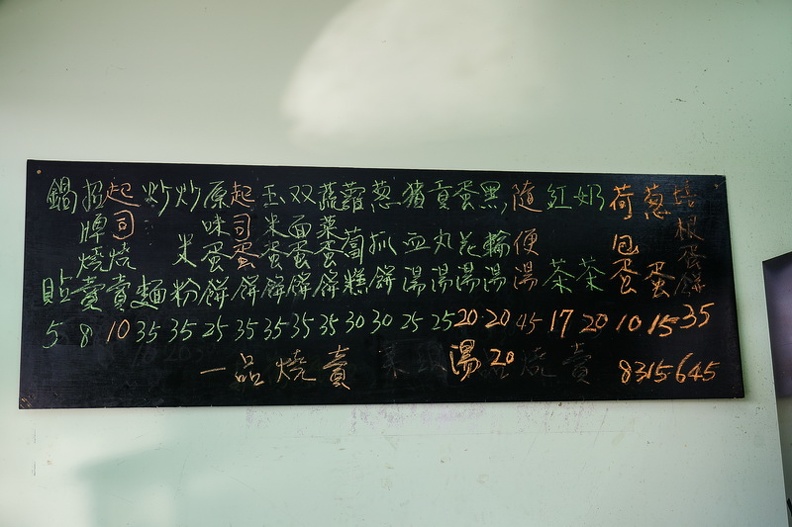 鍋貼 5
招牌燒賣 8
起司燒賣 10
炒麵 35
炒米粉 35
原味蛋餅 25
起司蛋餅 35
玉米蛋餅 35
双面蛋餅 35
蔬菜蛋餅 35
蘿蔔糕 30
葱抓餅 30
猪血湯 25
貢丸湯 25
蛋花湯 20
黑輪湯 20
隨便湯 45
紅茶 17
奶茶 20
荷包蛋 10
葱蛋 15
培根蛋餅 35
一品燒賣 湯20 8315645